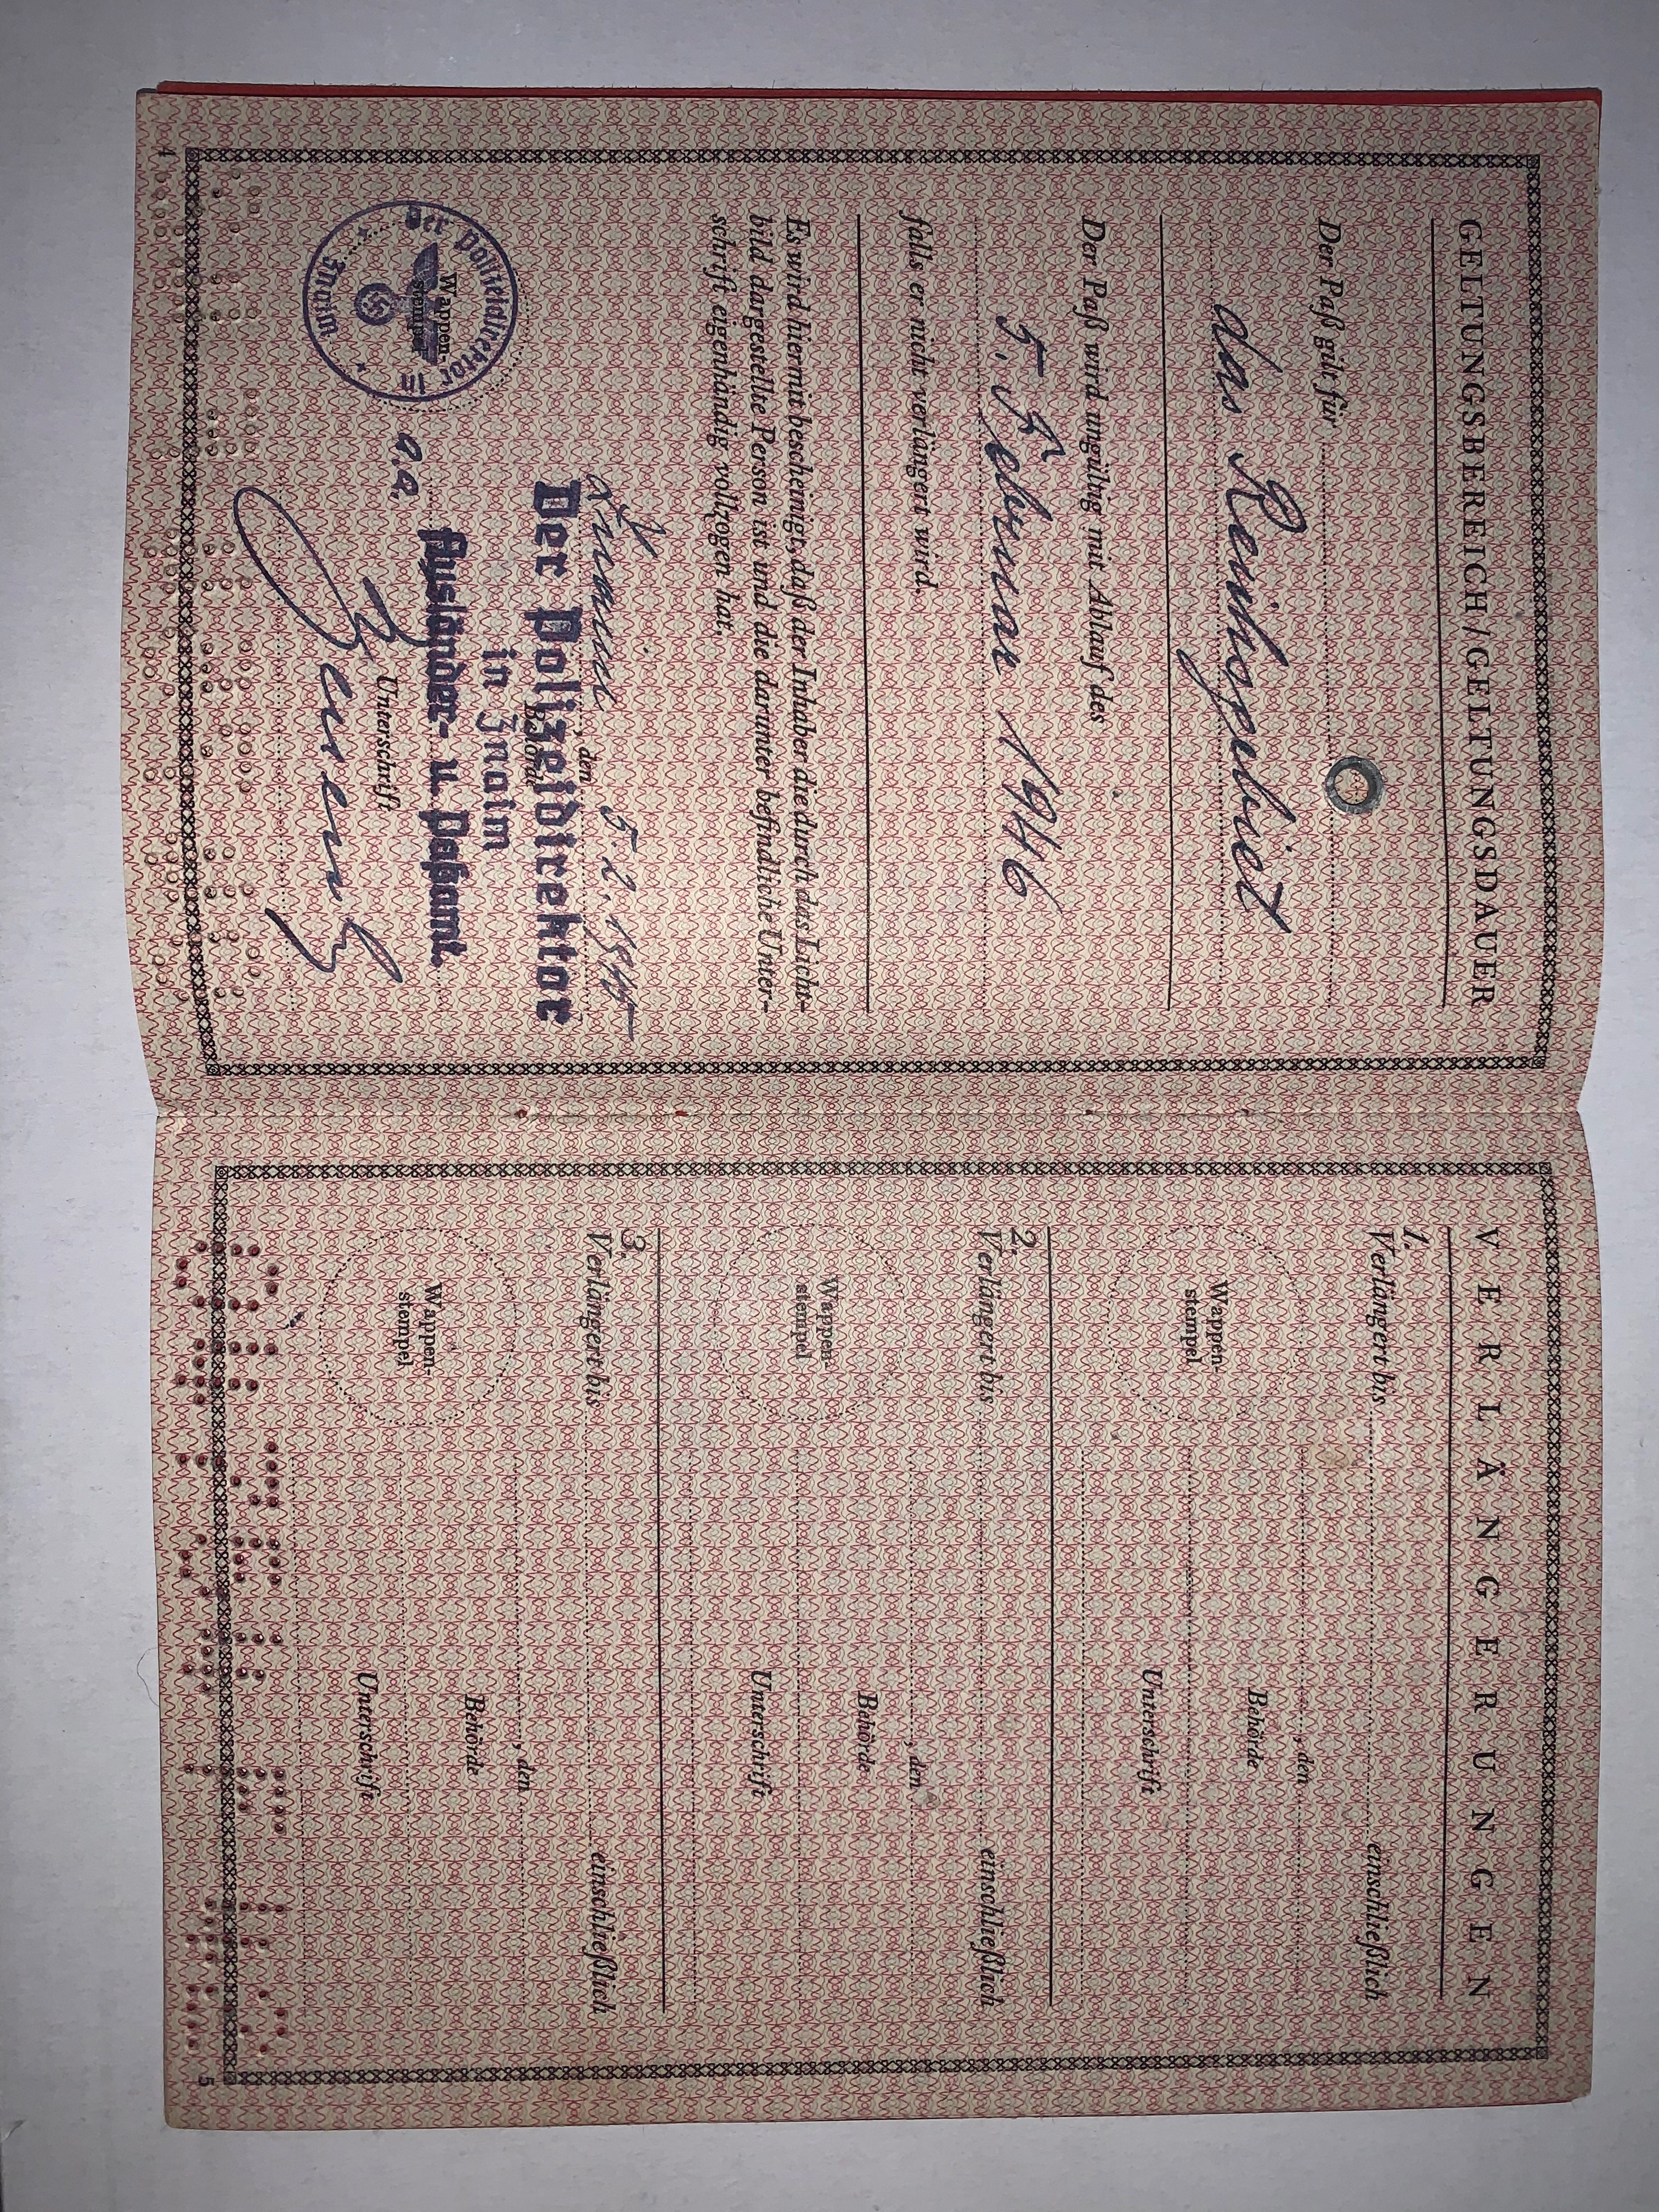 GELTUNGSBEREICH/GELTUNGSDAUER
Der Paß gilt für
das Reichsgebiet
Der Paß wird ungültig mit Ablauf des
5. Februar 1946
falls er nicht verlängert wird.
Es wird hiermit bescheinigt, daß der Inhaber die durch das Licht-
bild dargestellte Person ist und die darunter befindliche Unter-
schrift eigenhändig vollzogen hat.
Znaim, den 5. 2. 1945
Der Polizeidirektor
Behörde
in Znaim
Ausländer- u. Paßamt.
Wappen-
stempel
Der Polizeidirektor
Znaim
Unterschrift
4
VERLÄNGERUNGEN
1.
Verlängert bis einschließlich
Wappen-
stempel
, den
Behörde
Unterschrift
2.
Verlängert bis einschließlich
Wappen-
stempel
, den
Behörde
Unterschrift
3.
Verlängert bis einschließlich
Wappen-
stempel
, den
Behörde
Unterschrift
5